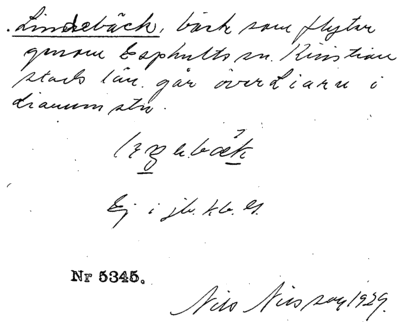 Lindebäck, bäck som flyter
genom Esphults sn. Kristian
stads län. går över Liaru i
Lianum stn.
Ej i jb. kb. el.
Nr 5345.
Nils Nilsson 1929.